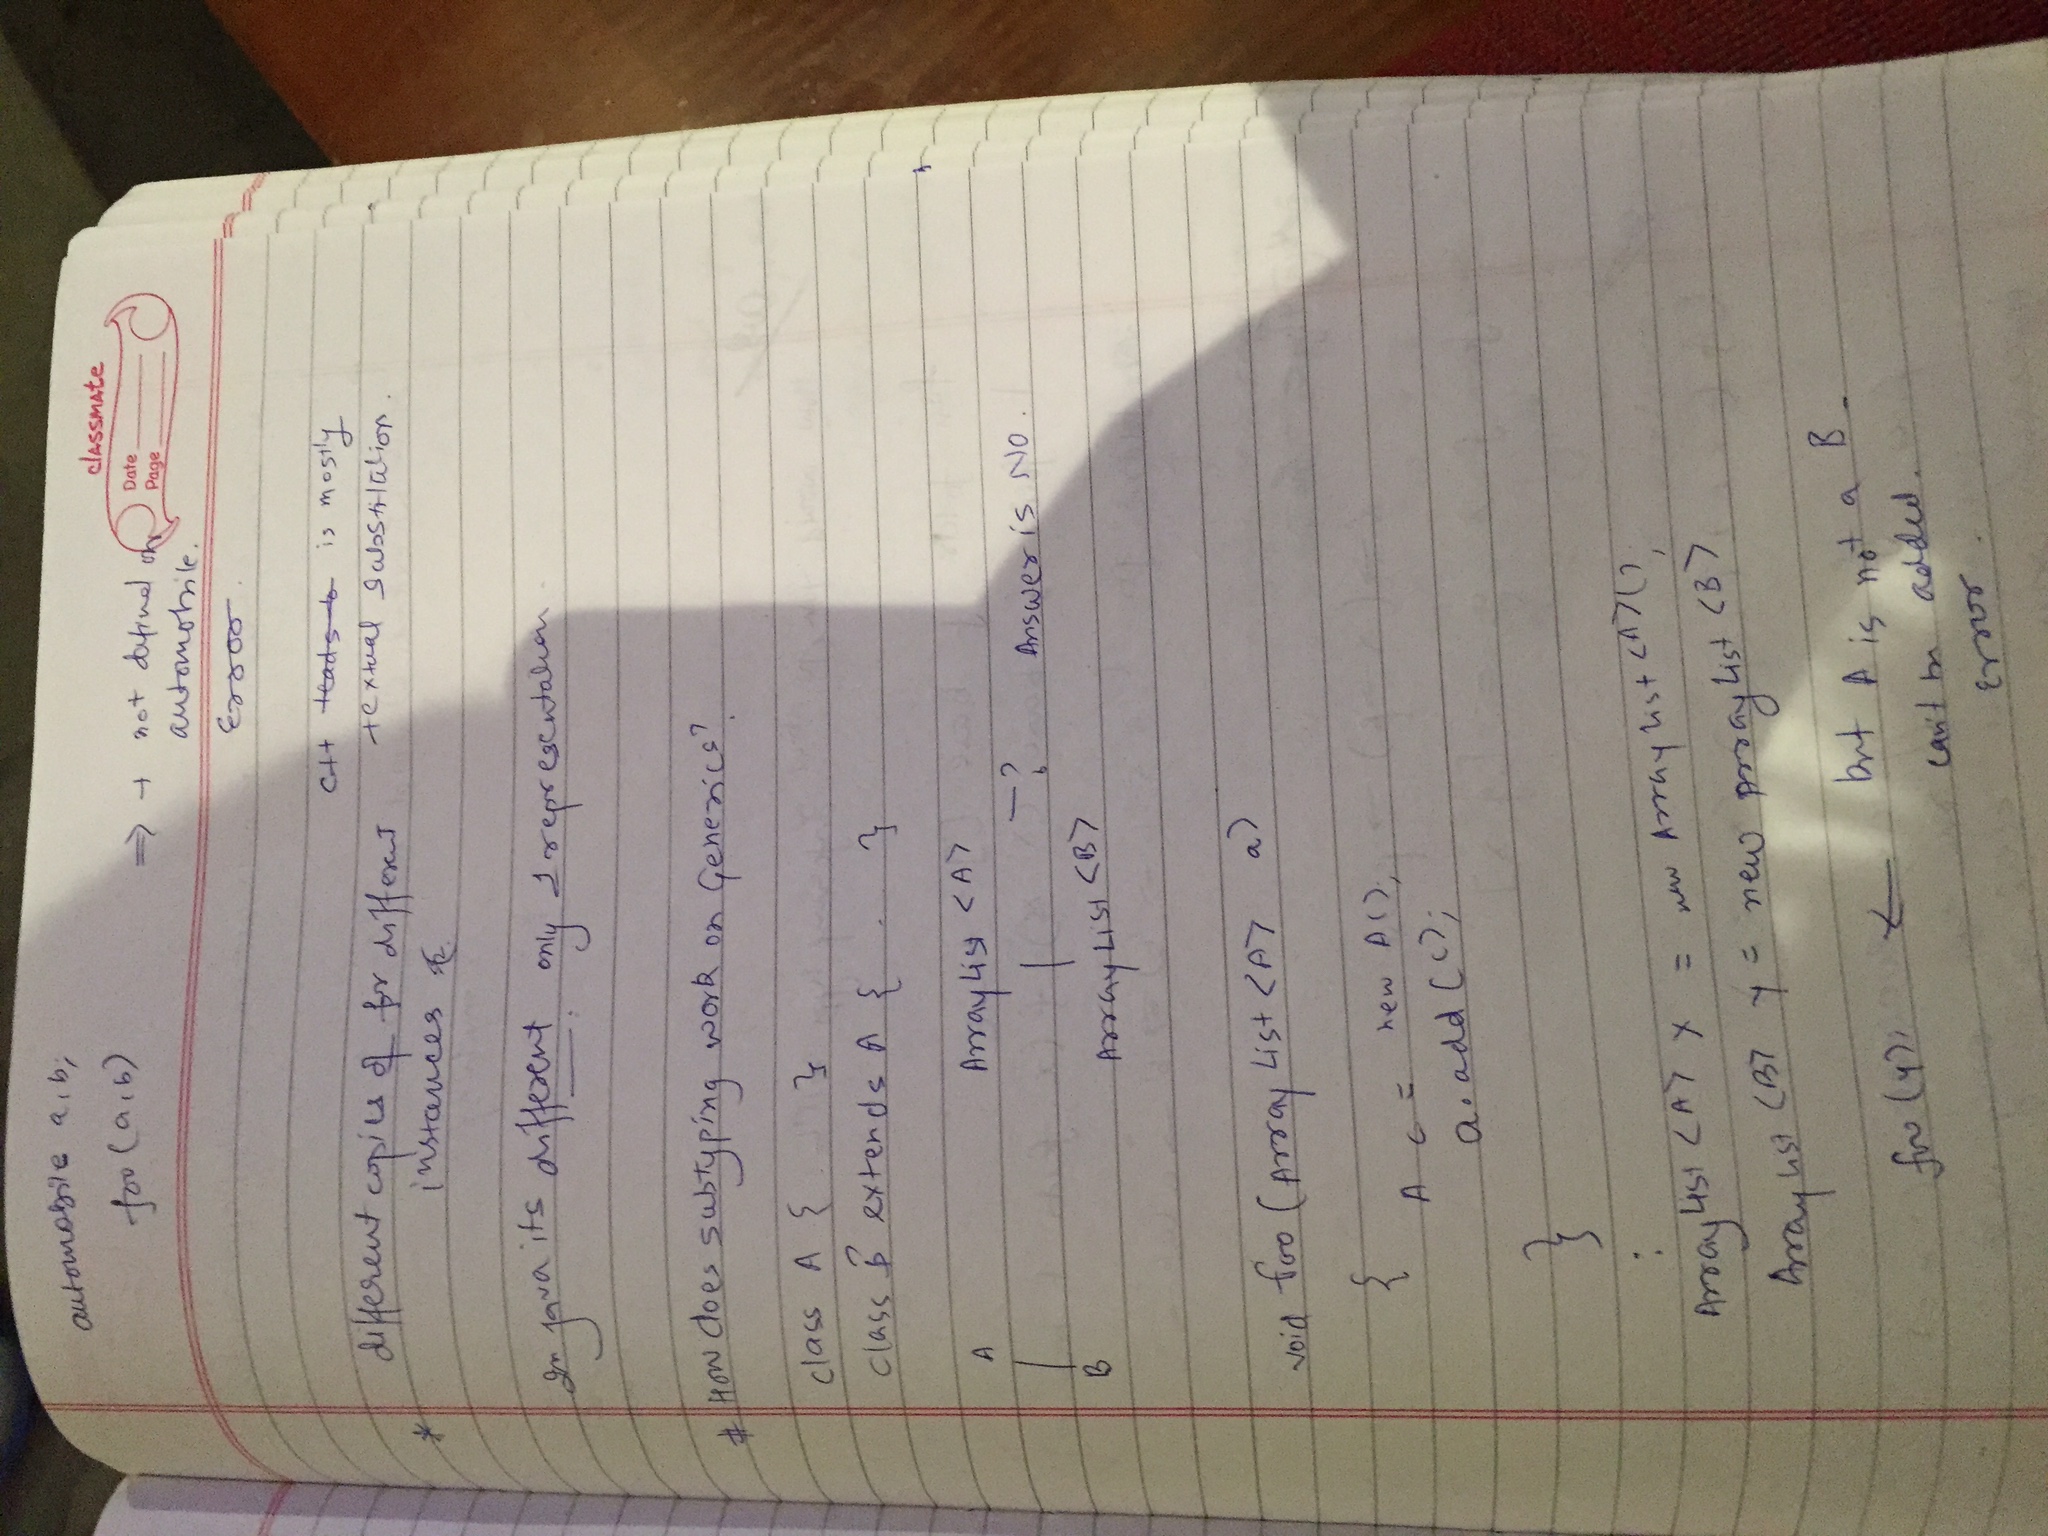 classmate
Date
Page
automobile a, b;
foo (a, b) ⇒ + not defined on
automobile.
Error.
C++ leads to is mostly
* different copies of for different textual substitution.
instances
In java its different only 1 representation.
# How does subtyping work on Generics?
class A { }
class B extends A { . . }
A ArrayList <A>
| | —? Answer is NO.
B ArrayList <B>
void foo (ArrayList <A> a)
{
A c = new A();
a.add (c);
}
:
ArrayList <A> x = new ArrayList <A>();
ArrayList <B> y = new ArrayList <B>
foo (y); ← but A is not a B.
can't be added.
Error.